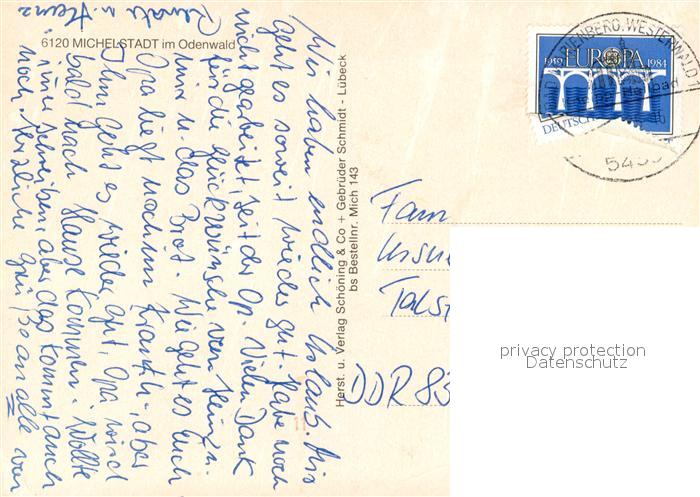 6120 MICHELSTADT im Odenwald
Wir haben endlich Urlaub. Mir
geht es soweit wieder gut, habe noch
nicht gearbeitet, seit der Op. Vielen Dank
für die Glückwünsche von Heinz u.
mir u. das Brot. Wie geht es Euch
Opa liegt noch im Krankh., aber
Ihm geht es wieder gut, Opa wird
bald nach Hause kommen. Wollte
immer schreiben, aber das kommt auch
noch. Herzliche Grüße an alle von
Renate u. Heinz
Herst. u. Verlag Schöning & Co + Gebrüder Schmidt - Lübeck
bs Bestellnr. Mich 143
EUROPA
1959 1984
DEUTSCHE
WESTERWALD 1
Fam
Talst
DDR 83
privacy protection
Datenschutz